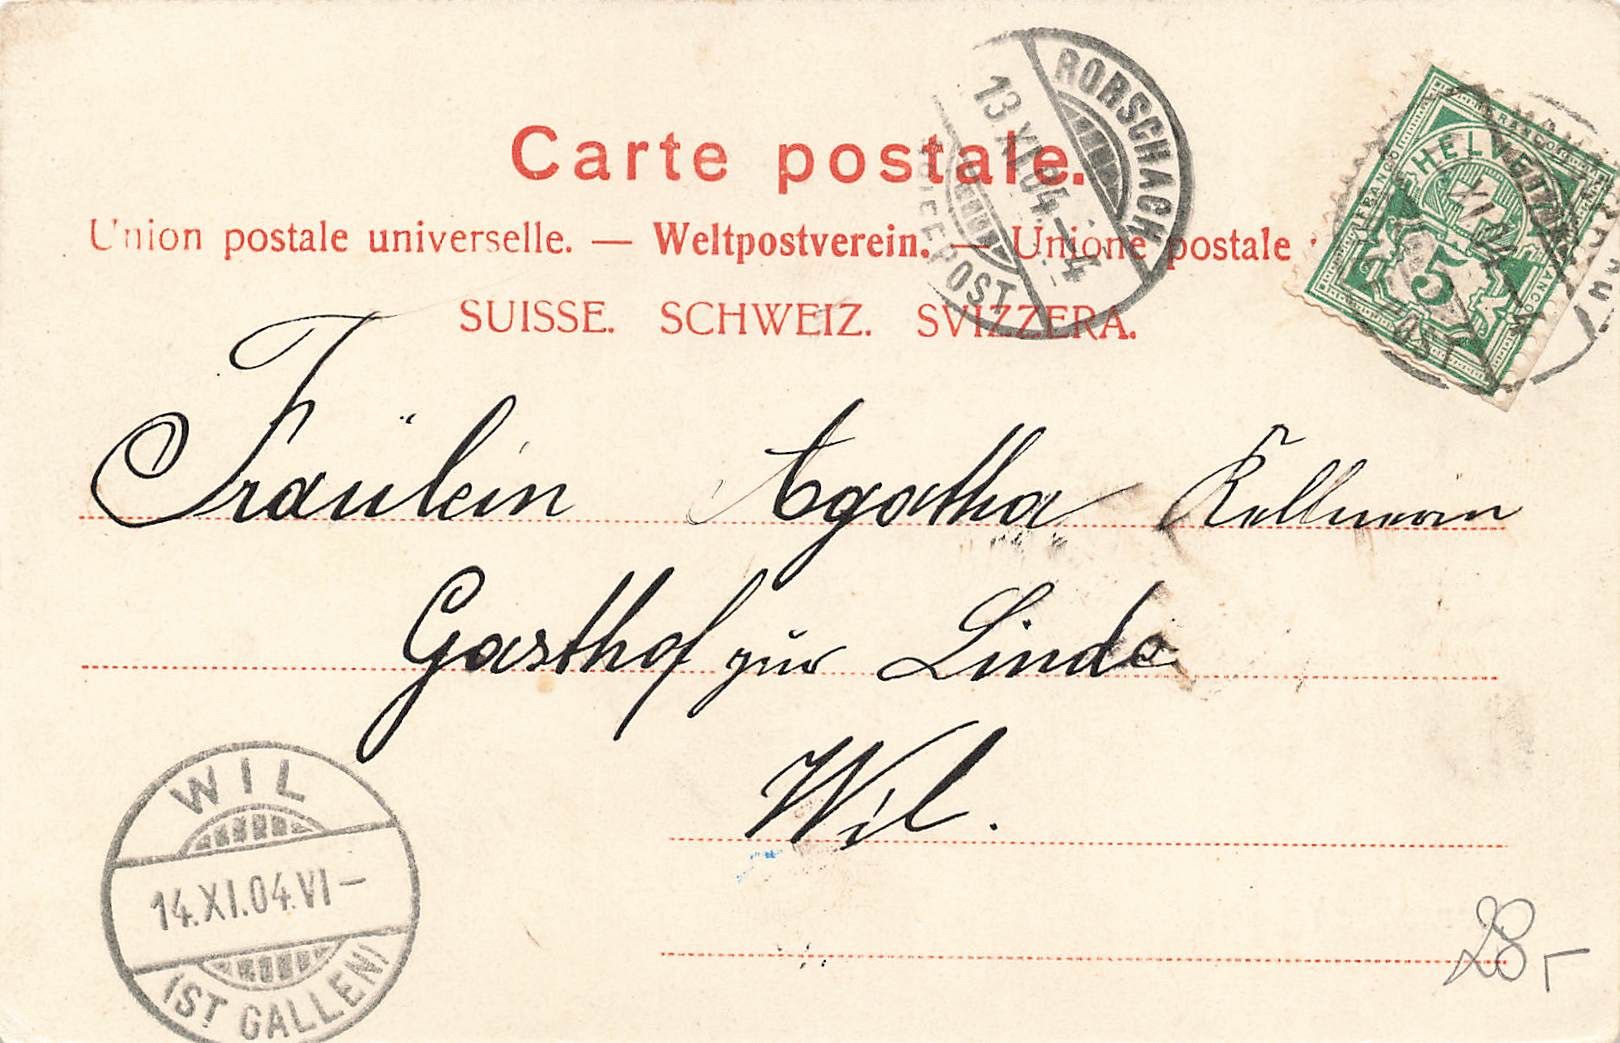 Carte postale.
Union postale universelle. — Weltpostverein. — Unione postale
SUISSE. SCHWEIZ. SVIZZERA.
RORSCHACH
13.XI.04.-4
BRIEFPOST
HELVETIA
FRANCO
5
XI.04
Fräulein Agatha
Gasthof zur Linde
Wil.
WIL
14.XI.04.VI-
(ST GALLEN)
28.-